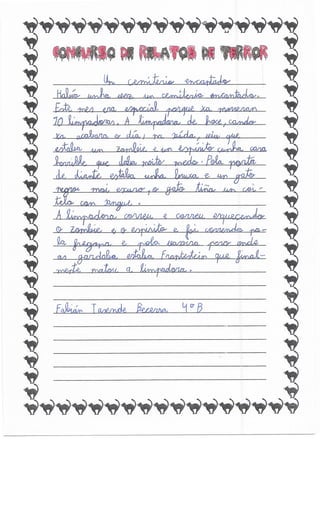 CONCURSO DE RELATOS DE TERROR
Un cemiterio encantado
Había unha vez un cemiterio encantado.
Este mes era especial porque xa morreran
10 limpadoras. A limpadora de hoxe, cando
xa acabara o día, na saída, viu que
estaba un zombie e un espírito cunha cara
horrible que daba moito medo. Pola porta
de diante estaba unha bruxa e un gato
negro moi escuro, o gato tiña un coi-
telo con sangue.
A limpadora correu e correu esquecendo
o zombie e o espírito e foi correndo pa-
la fregona e pola vasoira pero onde
as gardaba estaba Frankestein que final-
mente matou a limpadora.
Fabián Taxende Becerra 4º B